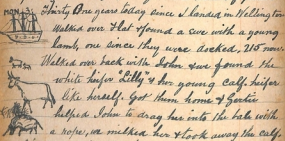 MON. 3
Thirty One years today since I landed in Wellington
Walked over Flat & found a ewe with a young
lamb, one since they were docked, 25 now.
Walked over back with John & we found the
white heifer "Lilly" & her young calf. heifer
like herself. Got them home &
helped John to drag her into the bale with
a rope, we milked her & took away the calf.